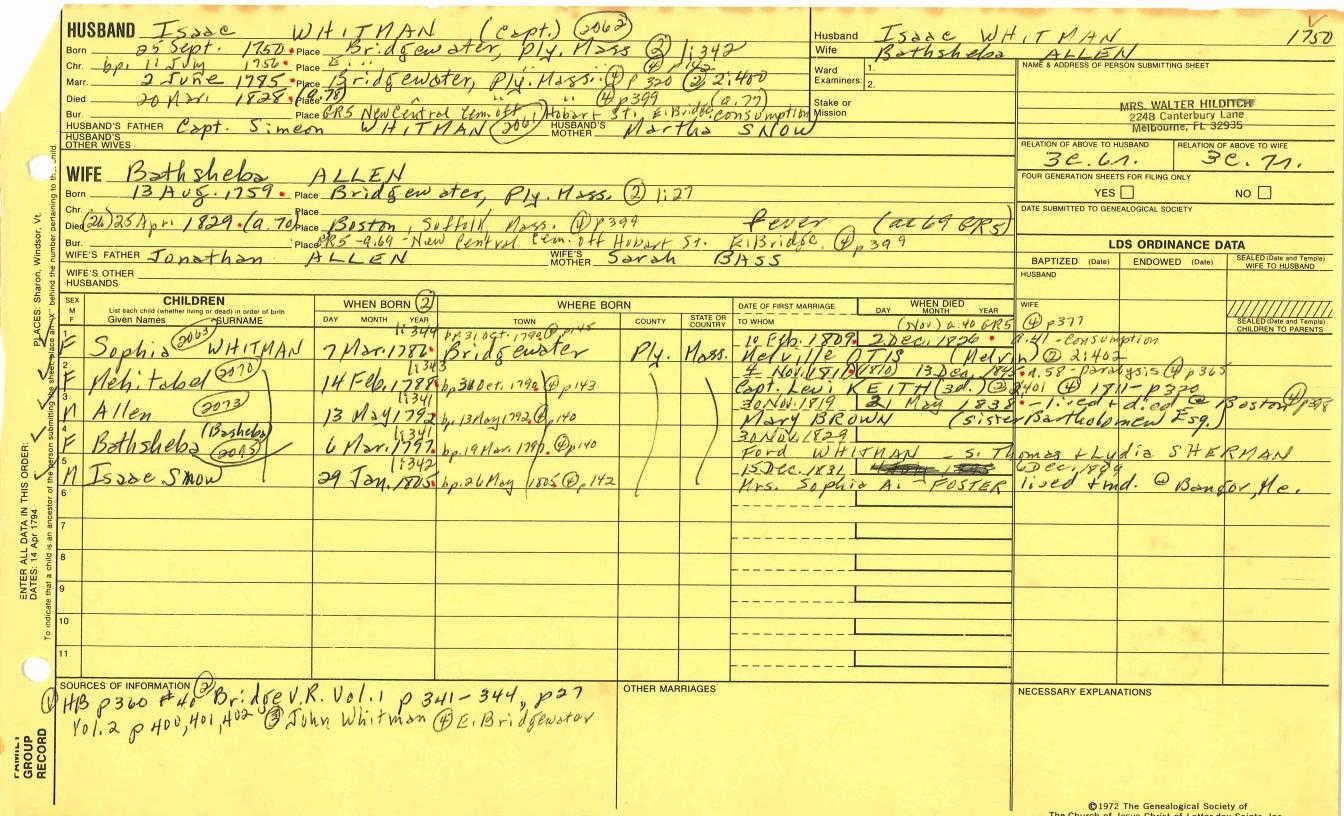 HUSBAND Isaac WHITMAN (Capt.) 2062
Born 25 Sept. 1750 Place Bridgewater, Ply. Mass 2 1:342
Chr. bp. 11 July 1756 Place 4 p142
Marr. 2 June 1785 Place Bridgewater, Ply. Mass. 4 p 320 2 2:400
Died 20 Mar. 1828 (a.78) Place " " 4 p399 (a.77)
Bur. Place GR5 New Central Cem. off Hobart St., E. Bridge. consumption
HUSBAND'S FATHER Capt. Simeon WHITMAN 2061 HUSBAND'S MOTHER Martha SNOW
HUSBAND'S OTHER WIVES
Husband Isaac WHITMAN 1750
Wife Bathsheba ALLEN
Ward Examiners: 1. 2.
Stake or Mission
NAME & ADDRESS OF PERSON SUBMITTING SHEET
MRS. WALTER HILDITCH
2248 Canterbury Lane
Melbourne, FL 32935
RELATION OF ABOVE TO HUSBAND RELATION OF ABOVE TO WIFE
3c. 6r. 3c. 7r.
FOUR GENERATION SHEETS FOR FILING ONLY
YES NO
DATE SUBMITTED TO GENEALOGICAL SOCIETY
WIFE Bathsheba ALLEN
Born 13 Aug. 1759 Place Bridgewater, Ply. Mass. 2 1:27
Chr. Place
Died (26) 25 Apr. 1829 (a.70) Place Boston, Suffolk, Mass. 4 p399 fever (ae 69 GR5)
Bur. Place GR5-a.69-New Central Cem. off Hobart St. E. Bridge, 4 p399
WIFE'S FATHER Jonathan ALLEN WIFE'S MOTHER Sarah BASS
WIFE'S OTHER HUSBANDS
LDS ORDINANCE DATA
BAPTIZED (Date) ENDOWED (Date) SEALED (Date and Temple) WIFE TO HUSBAND
HUSBAND
WIFE
SEALED (Date and Temple) CHILDREN TO PARENTS
SEX M F CHILDREN List each child (whether living or dead) in order of birth Given Names SURNAME
WHEN BORN 2 DAY MONTH YEAR WHERE BORN TOWN COUNTY STATE OR COUNTRY
DATE OF FIRST MARRIAGE TO WHOM WHEN DIED DAY MONTH YEAR
(Nov.) a.40 GR5 4 p377
1 F Sophia 2063 WHITMAN 1:344 7 Mar. 1786 bp. 31 Oct. 1790 4 p145 Bridgewater Ply. Mass. 10 Feb. 1809 2 Dec. 1826 a.41-consumption
Melville OTIS (Melvin) 2 2:402
2 F Mehitabel 2070 1:343 14 Feb. 1788 bp 31 Oct. 1790 4 p143 4 Nov. 1810 (1810) 13 Dec. a.58-paralysis 4 p365
Capt. Levi KEITH (3d.) 2 2:401 4 1811-p320
3 M Allen 2073 1:341 13 May 1792 bp. 13 May 1792 4 p140 30 Nov. 1819 21 May 1838 - lived & died @ Boston 4 p398
Mary BROWN (sister Bartholomew Esq.)
4 F Bathsheba (Basheba) 2095 1:341 6 Mar. 1797 bp. 19 Mar. 1797 4 p140 30 Nov. 1829
Ford WHITMAN - s. Thomas & Lydia SHERMAN
5 M Isaac Snow 1:342 29 Jan. 1805 bp. 26 May 1805 4 p142 15 Dec. 1831 6 Dec. 1809
Mrs. Sophia A. FOSTER lived & md. @ Bangor, Me.
6
7
8
9
10
11
SOURCES OF INFORMATION
1 HB p360 #40 2 Bridge V.R. Vol. 1 p 341-344, p27
Vol. 2 p 400, 401, 402 3 John Whitman 4 E. Bridgewater
OTHER MARRIAGES
NECESSARY EXPLANATIONS
©1972 The Genealogical Society of
The Church of Jesus Christ of Latter-day Saints, Inc.
PLACES: Sharon, Windsor, Vt.
ENTER ALL DATA IN THIS ORDER:
DATES: 14 Apr 1794
To indicate that a child is an ancestor of the person submitting the sheet, place an "X" behind the number pertaining to that child.
FAMILY GROUP RECORD